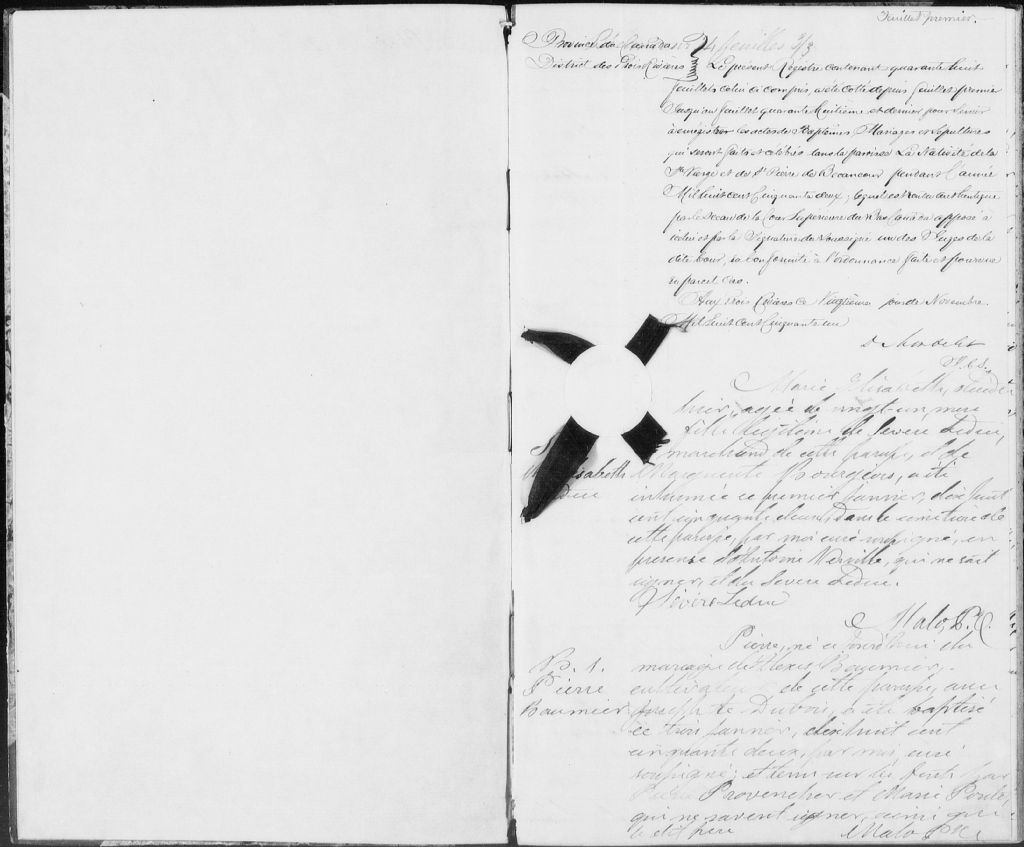 Feuillet premier.
Province du Canada 48 feuilles 2/3
District des Trois Rivières Le présent Registre contenant quarante huit
feuillets celui ci compris, a été coté depuis feuillet premier
Jusqu'au feuillet quarante huitième et dernier pour servir
à enrégistrer les actes de Baptêmes Mariages et Sepultures
qui seront faits et célébrés dans la paroisse La Nativité de la
Ste Vierge et de St Pierre de Becancour pendant l'année
Mil huit cent Cinquante deux, lequel est rendu authentique
par le Sceau de la Cour Supérieure du Bas Canada apposé à
icelui et par la Signature du Soussigné un des Juges de la
dite Cour, en conformité à l'ordonnance faite et pourvue
en pareil Cas.
Aux Trois Rivières Ce Vingtième jour de Novembre
Mil huit cent Cinquante un
D Mondelet
J.C.S.
Marie Elisabeth,
agée de vingt un mois
fille légitime de Severe Leduc,
marchand de cette paroisse, et de
Marguerite Bourgeois, a été
inhumée ce premier janvier, dix huit
cent cinquante deux, dans le cimetière de
cette paroisse, par moi curé soussigné, en
presence d'Antoine Verville, qui ne sait
signer, et du Severe Leduc.
Sévère Leduc
Malo, P.C.
isabeth
Leduc
B. 1.
Pierre
Baumier
Pierre, né ce jourd'hui du
mariage de Alexis Baumier,
cultivateur de cette paroisse, avec
Josephte Dubois, a été baptisé
ce trois janvier, dix huit cent
cinquante deux, par moi, curé
soussigné; et tenu sur les fonts par
Pierre Provencher et Marie
qui ne savent signer, ainsi que
le dit père
Malo P.C.